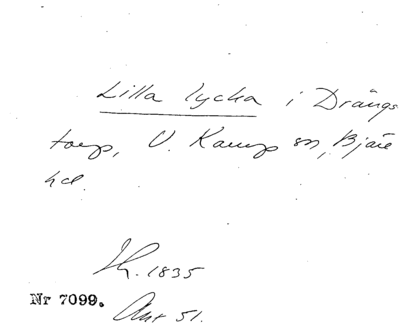 Lilla lycka i Drängs
torp, V. Karup sn, Bjäre
hd.
Th. 1835
Nr 7099.
Ant 51.